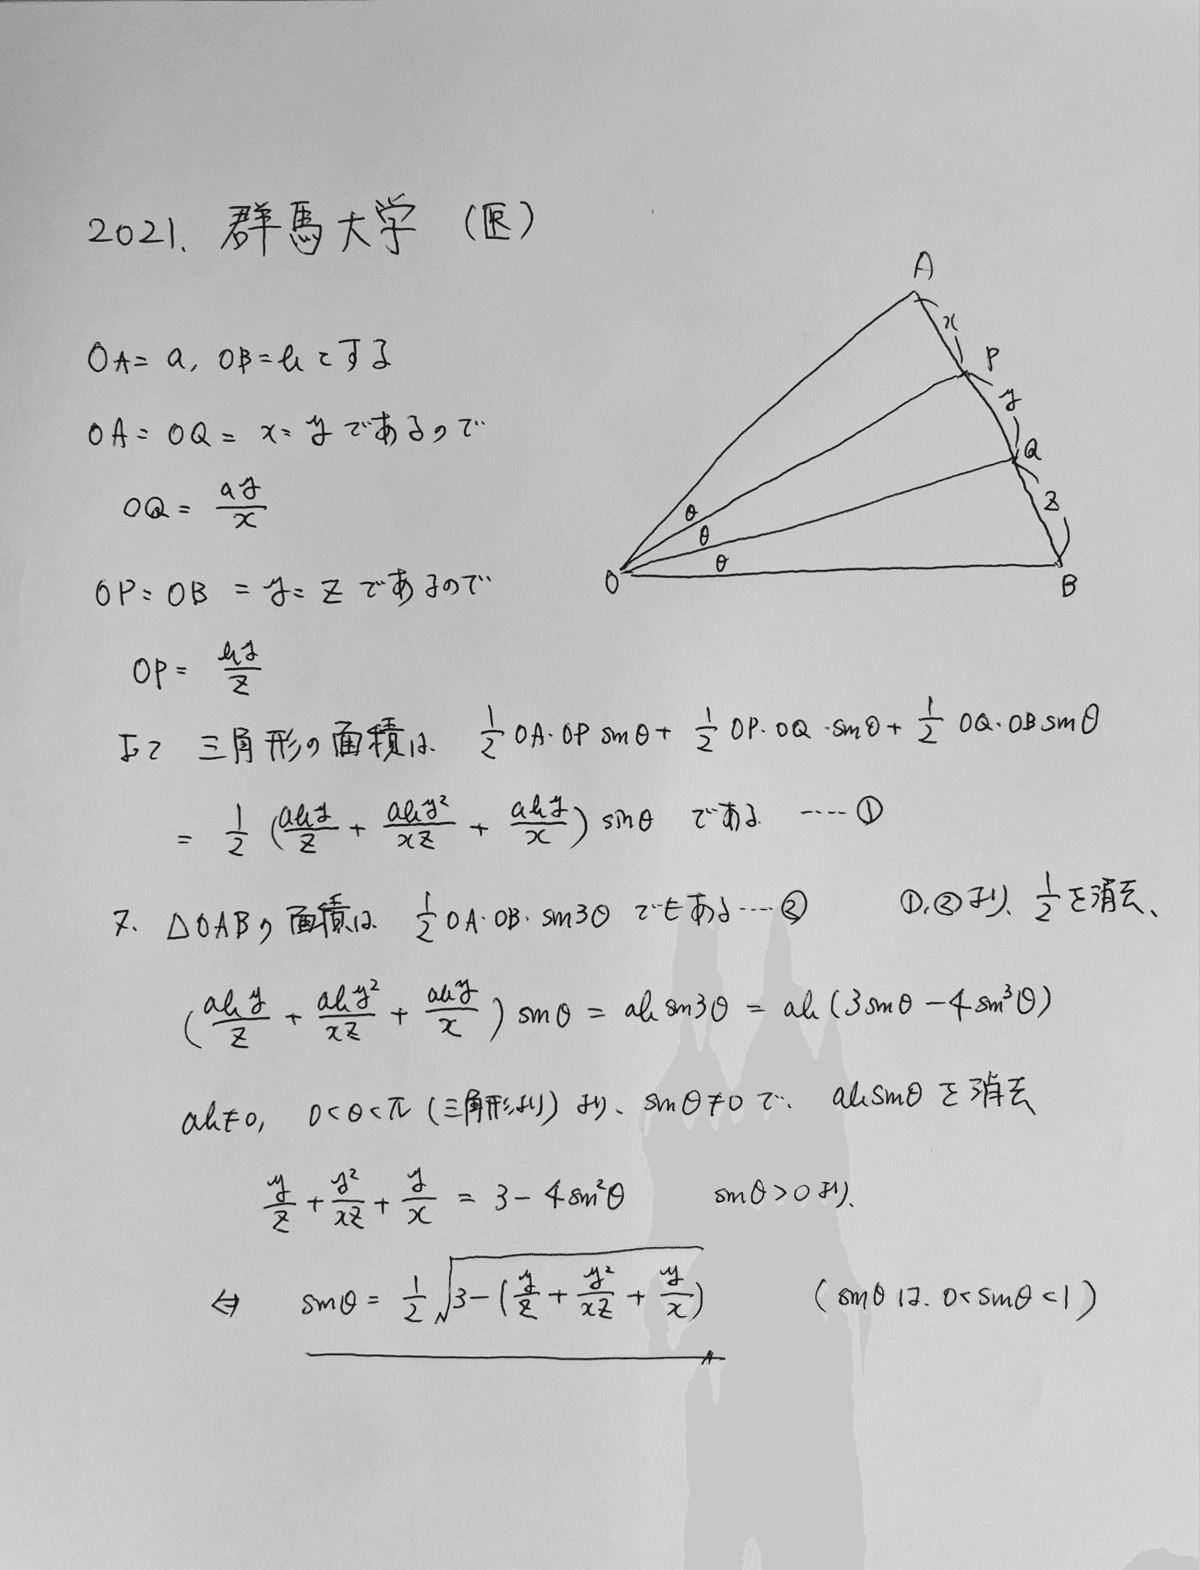 2021. 群馬大学 (医)
OA = a, OB = b とする
OA = OQ = x = y であるので
OQ = ay/x
OP = OB = y = z であるので
OP = by/z
よって 三角形の面積は 1/2 OA・OP sinθ + 1/2 OP・OQ・sinθ + 1/2 OQ・OB sinθ
= 1/2 (aby/z + aby²/xz + aby/x) sinθ である ‥‥①
又、△OABの面積は 1/2 OA・OB・sin3θ でもある‥‥② ①,②より、1/2を消去、
(aby/z + aby²/xz + aby/x) sinθ = ab sin3θ = ab (3sinθ - 4sin³θ)
ab≠0, 0<θ<π (三角形より) より、sinθ≠0 で、 ab sinθ を消去
y/z + y²/xz + y/x = 3 - 4sin²θ sinθ>0 より、
⇔ sinθ = 1/2 √(3-(y/z + y²/xz + y/x)) (sinθは、0<sinθ<1)
A
x
P
y
Q
z
B
O
θ
θ
θ